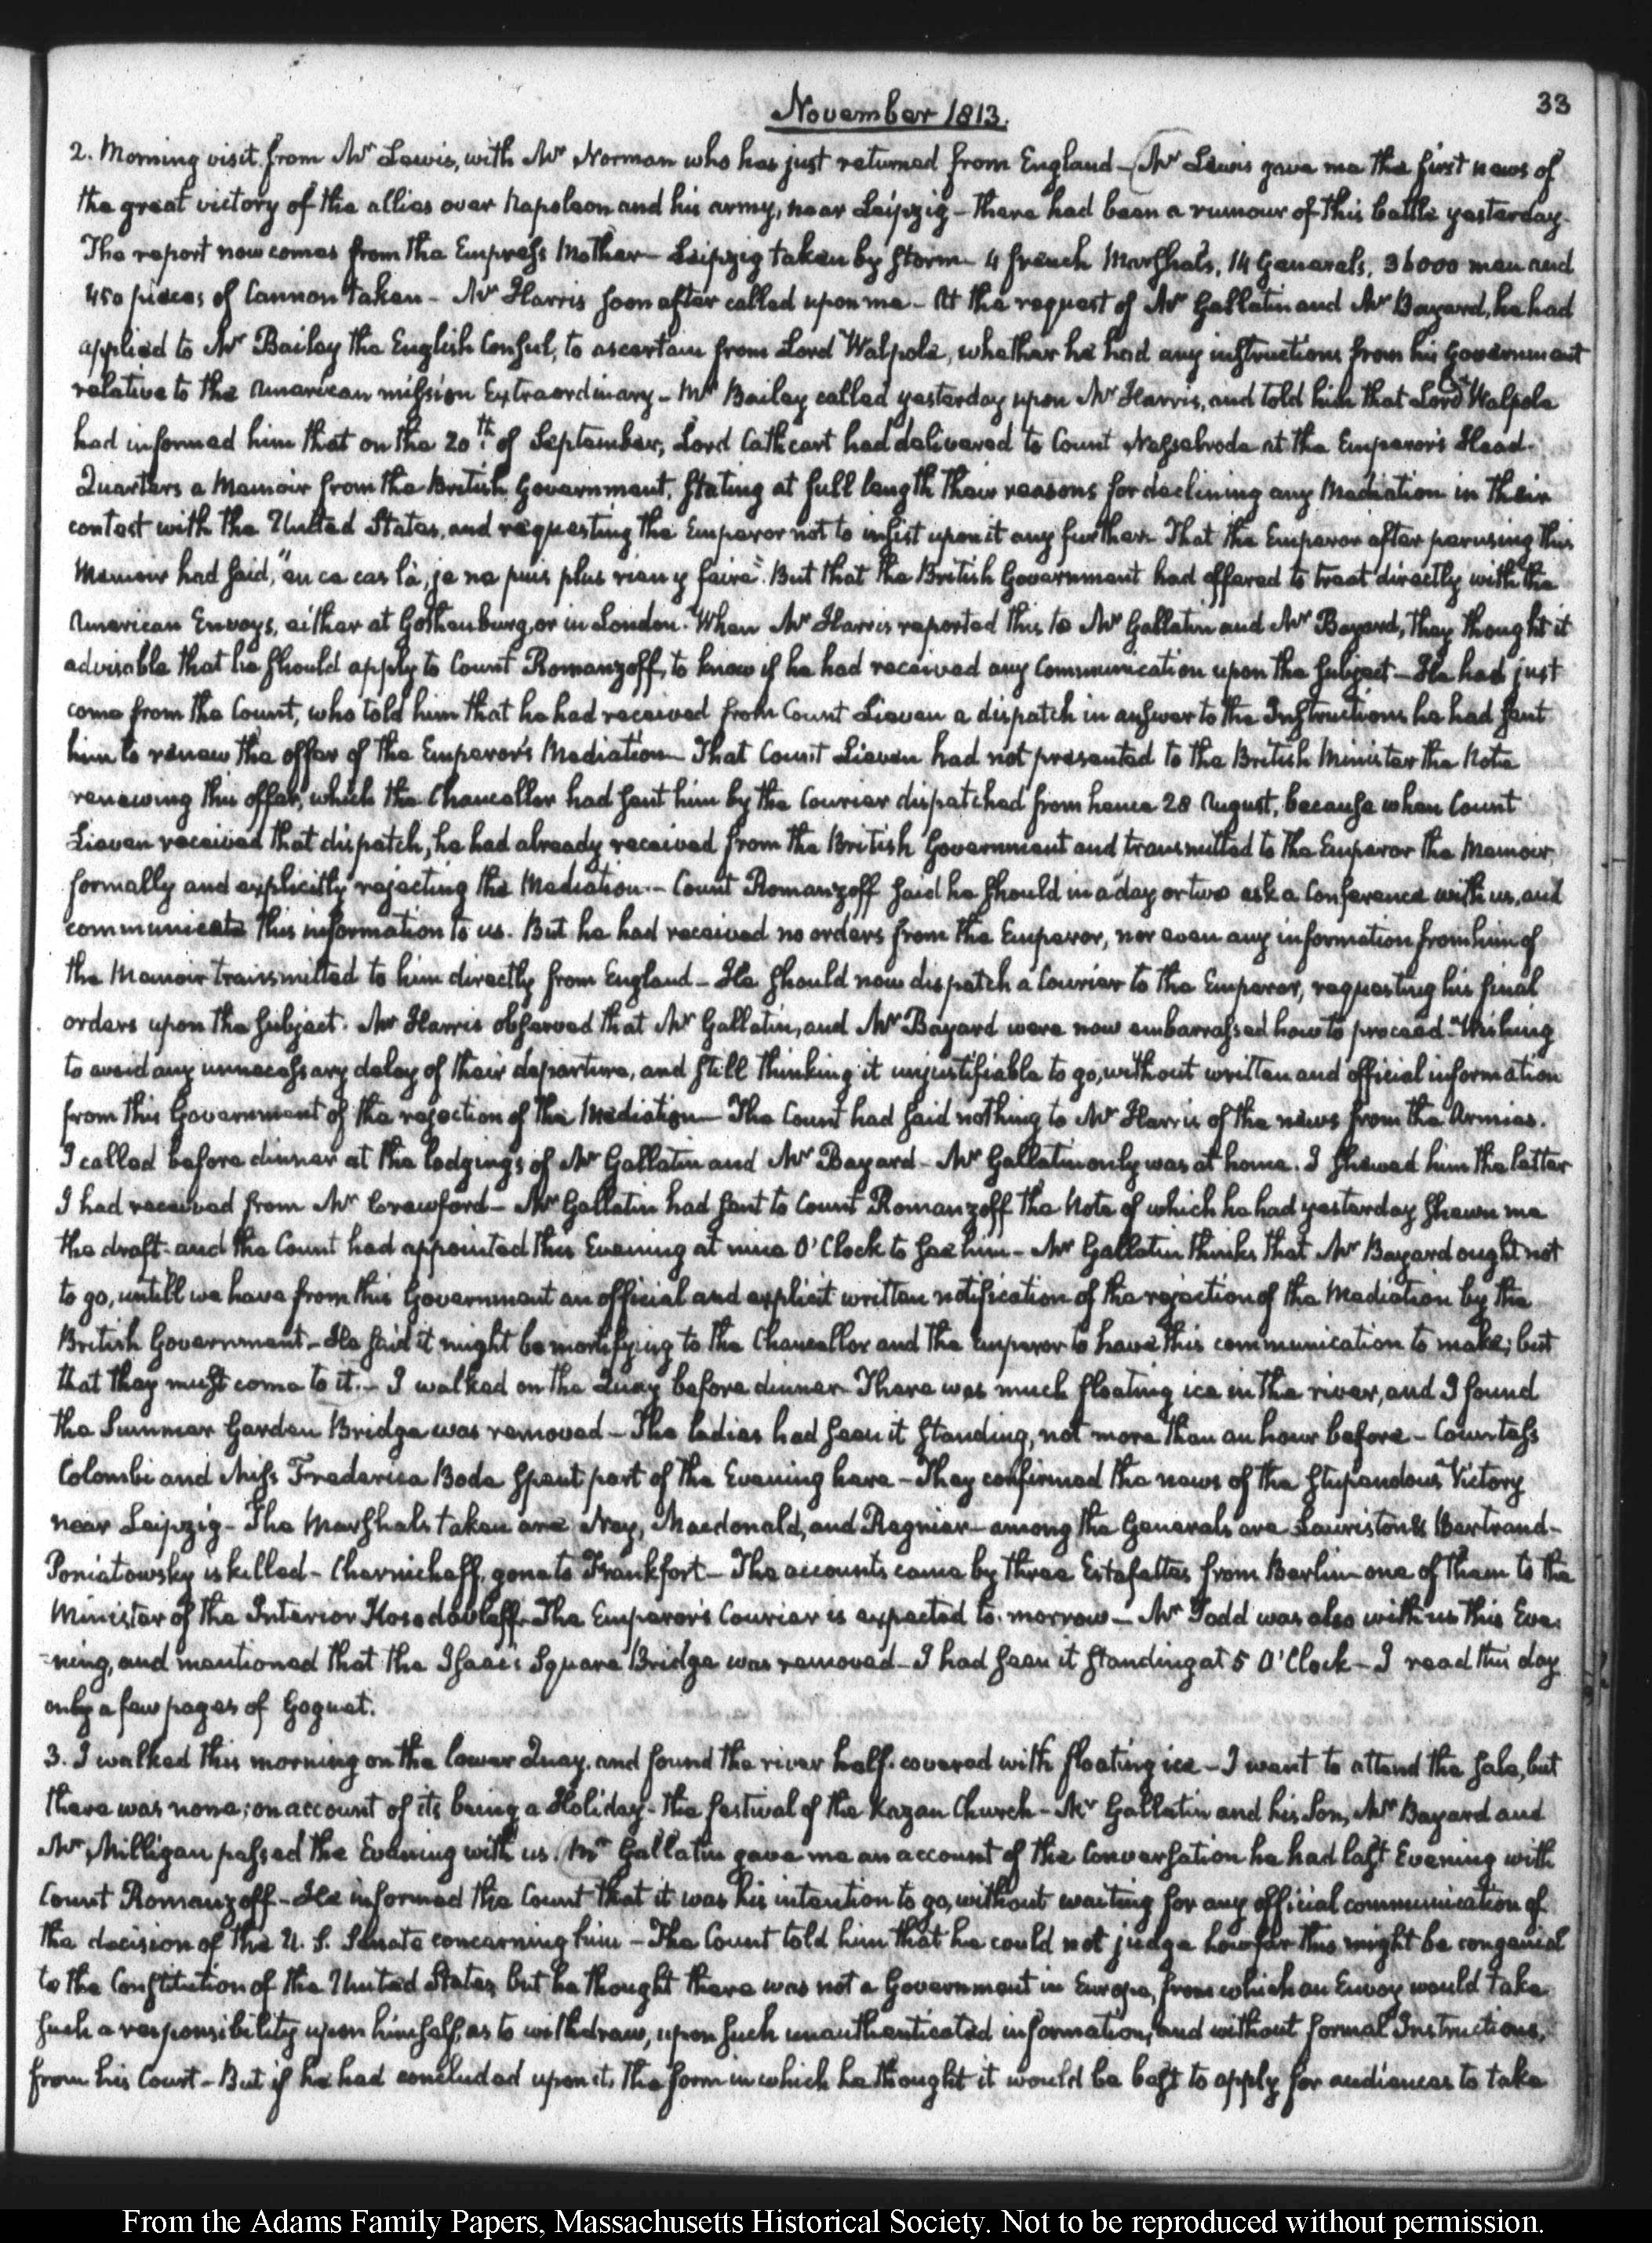 33
November 1813.
2. Morning visit from Mr Lewis, with Mr Norman who has just returned from England – Mr Lewis gave me the first news of
the great victory of the allies over Napoleon and his army, near Leipzig – there had been a rumour of this battle yesterday.
The report now comes from the Empress Mother – Leipzig taken by storm – 4 french Marshals, 14 Generals, 36000 men and
450 pieces of Cannon taken – Mr Harris soon after called upon me – At the request of Mr Gallatin and Mr Bayard, he had
applied to Mr Bailey the English Consul, to ascertain from Lord Walpole, whether he had any instructions from his Government
relative to the American mission Extraordinary – Mr Bailey called yesterday upon Mr Harris, and told him that Lord Walpole
had informed him that on the 20th of September, Lord Cathcart had delivered to Count Nesselrode at the Emperor's Head-
Quarters a Memoir from the British Government, stating at full length their reasons for declining any Mediation in their
contest with the United States, and requesting the Emperor not to insist upon it any further. That the Emperor after perusing this
Memoir had said, "en ce cas là, je ne puis plus rien y faire". But that the British Government had offered to treat directly with the
American Envoys, either at Gothenburg, or in London. When Mr Harris reported this to Mr Gallatin and Mr Bayard, they thought it
advisable that he should apply to Count Romanzoff, to know if he had received any Communication upon the subject – He had just
come from the Count, who told him that he had received from Count Lieven a dispatch in answer to the Instructions he had sent
him to renew the offer of the Emperor's Mediation – That Count Lieven had not presented to the British Minister the Note
renewing this offer, which the Chancellor had sent him by the Courier dispatched from hence 28 August, because when Count
Lieven received that dispatch, he had already received from the British Government and transmitted to the Emperor the Memoir,
formally and explicitly rejecting the Mediation. – Count Romanzoff said he should in a day or two ask a Conference with us, and
communicate this information to us. But he had received no orders from the Emperor, nor even any information from him of
the Memoir transmitted to him directly from England – He should now dispatch a Courier to the Emperor, requesting his final
orders upon the subject. Mr Harris observed that Mr Gallatin, and Mr Bayard were now embarrassed how to proceed – Wishing
to avoid any unnecessary delay of their departure, and still thinking it unjustifiable to go, without written and official information
from this Government of the rejection of the Mediation – The Count had said nothing to Mr Harris of the news from the Armies.
I called before dinner at the lodgings of Mr Gallatin and Mr Bayard – Mr Gallatin only was at home. I shewed him the letter
I had received from Mr Crawford – Mr Gallatin had sent to Count Romanzoff the Note of which he had yesterday shewn me
the draft – and the Count had appointed this Evening at nine O'Clock to see him – Mr Gallatin thinks that Mr Bayard ought not
to go, untill we have from this Government an official and explicit written notification of the rejection of the Mediation by the
British Government – He said it might be mortifying to the Chancellor and the Emperor to have this communication to make; but
that they must come to it. – I walked on the Quay before dinner – There was much floating ice in the river, and I found
the Summer Garden Bridge was removed – The ladies had seen it standing, not more than an hour before – Countess
Colombi and Miss Frederica Bode spent part of the Evening here – They confirmed the news of the stupendous Victory
near Leipzig – The Marshals taken are Ney, Macdonald, and Regnier – among the Generals are Lauriston & Bertrand –
Poniatowsky is killed – Chernicheff, gone to Frankfort – The accounts came by three Estafettes from Berlin – one of them to the
Minister of the Interior Kosodavleff. The Emperor's Courier is expected to-morrow – Mr Todd was also with us this Eve-
-ning, and mentioned that the Isaac's Square Bridge was removed – I had seen it standing at 5 O'Clock – I read this day
only a few pages of Goguet.
3. I walked this morning on the lower Quay, and found the river half-covered with floating ice – I went to attend the sale, but
there was none; on account of its being a Holiday – the festival of the Kazan Church – Mr Gallatin and his Son, Mr Bayard and
Mr Milligan passed the Evening with us. Mr Gallatin gave me an account of the Conversation he had last Evening with
Count Romanzoff – He informed the Count that it was his intention to go, without waiting for any official communication of
the decision of the U. S. Senate concerning him – The Count told him that he could not judge how far this might be congenial
to the Constitution of the United States, but he thought there was not a Government in Europe, from which an Envoy would take
such a responsibility upon himself, as to withdraw, upon such unauthenticated information, and without formal Instructions,
from his Court – But if he had concluded upon it, the form in which he thought it would be best to apply for audiences to take
From the Adams Family Papers, Massachusetts Historical Society. Not to be reproduced without permission.